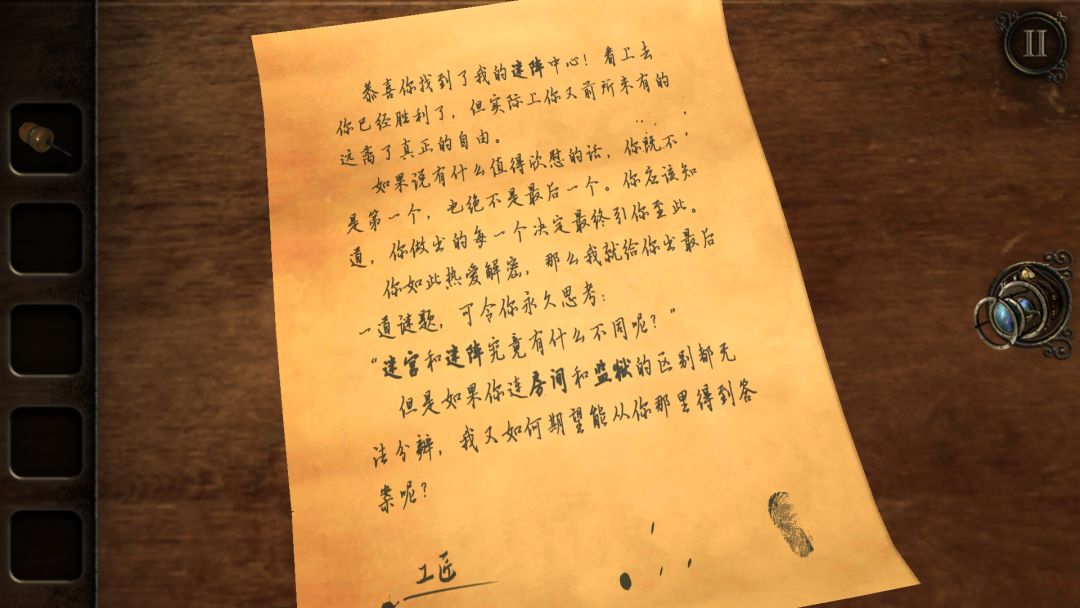 II
恭喜你找到了我的迷阵中心！看上去
你已经胜利了，但实际上你又前所未有的
远离了真正的自由。
如果说有什么值得欣慰的话，你既不
是第一个，也绝不是最后一个。你应该知
道，你做出的每一个决定最终引你至此。
你如此热爱解密，那么我就给你出最后
一道谜题，可令你永久思考：
“迷宫和迷阵究竟有什么不同呢？”
但是如果你连房间和监狱的区别都无
法分辨，我又如何期望能从你那里得到答
案呢？
工匠